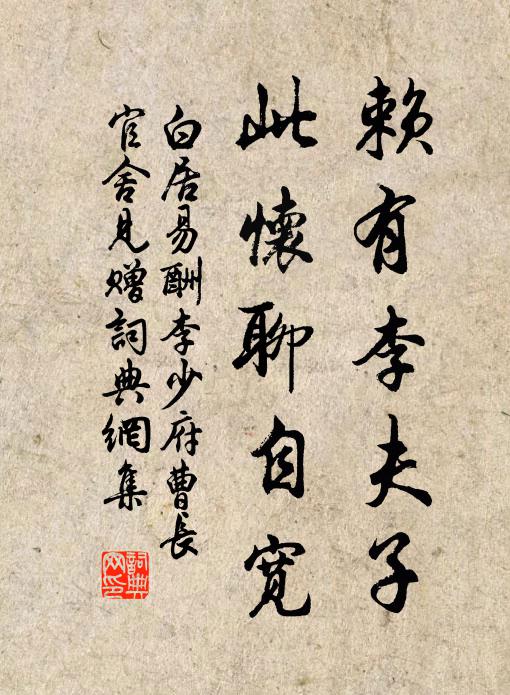 賴有李夫子
此懷聊自寬
白居易酬李少府曹長
官舍見贈詞典網集
詞典
网印